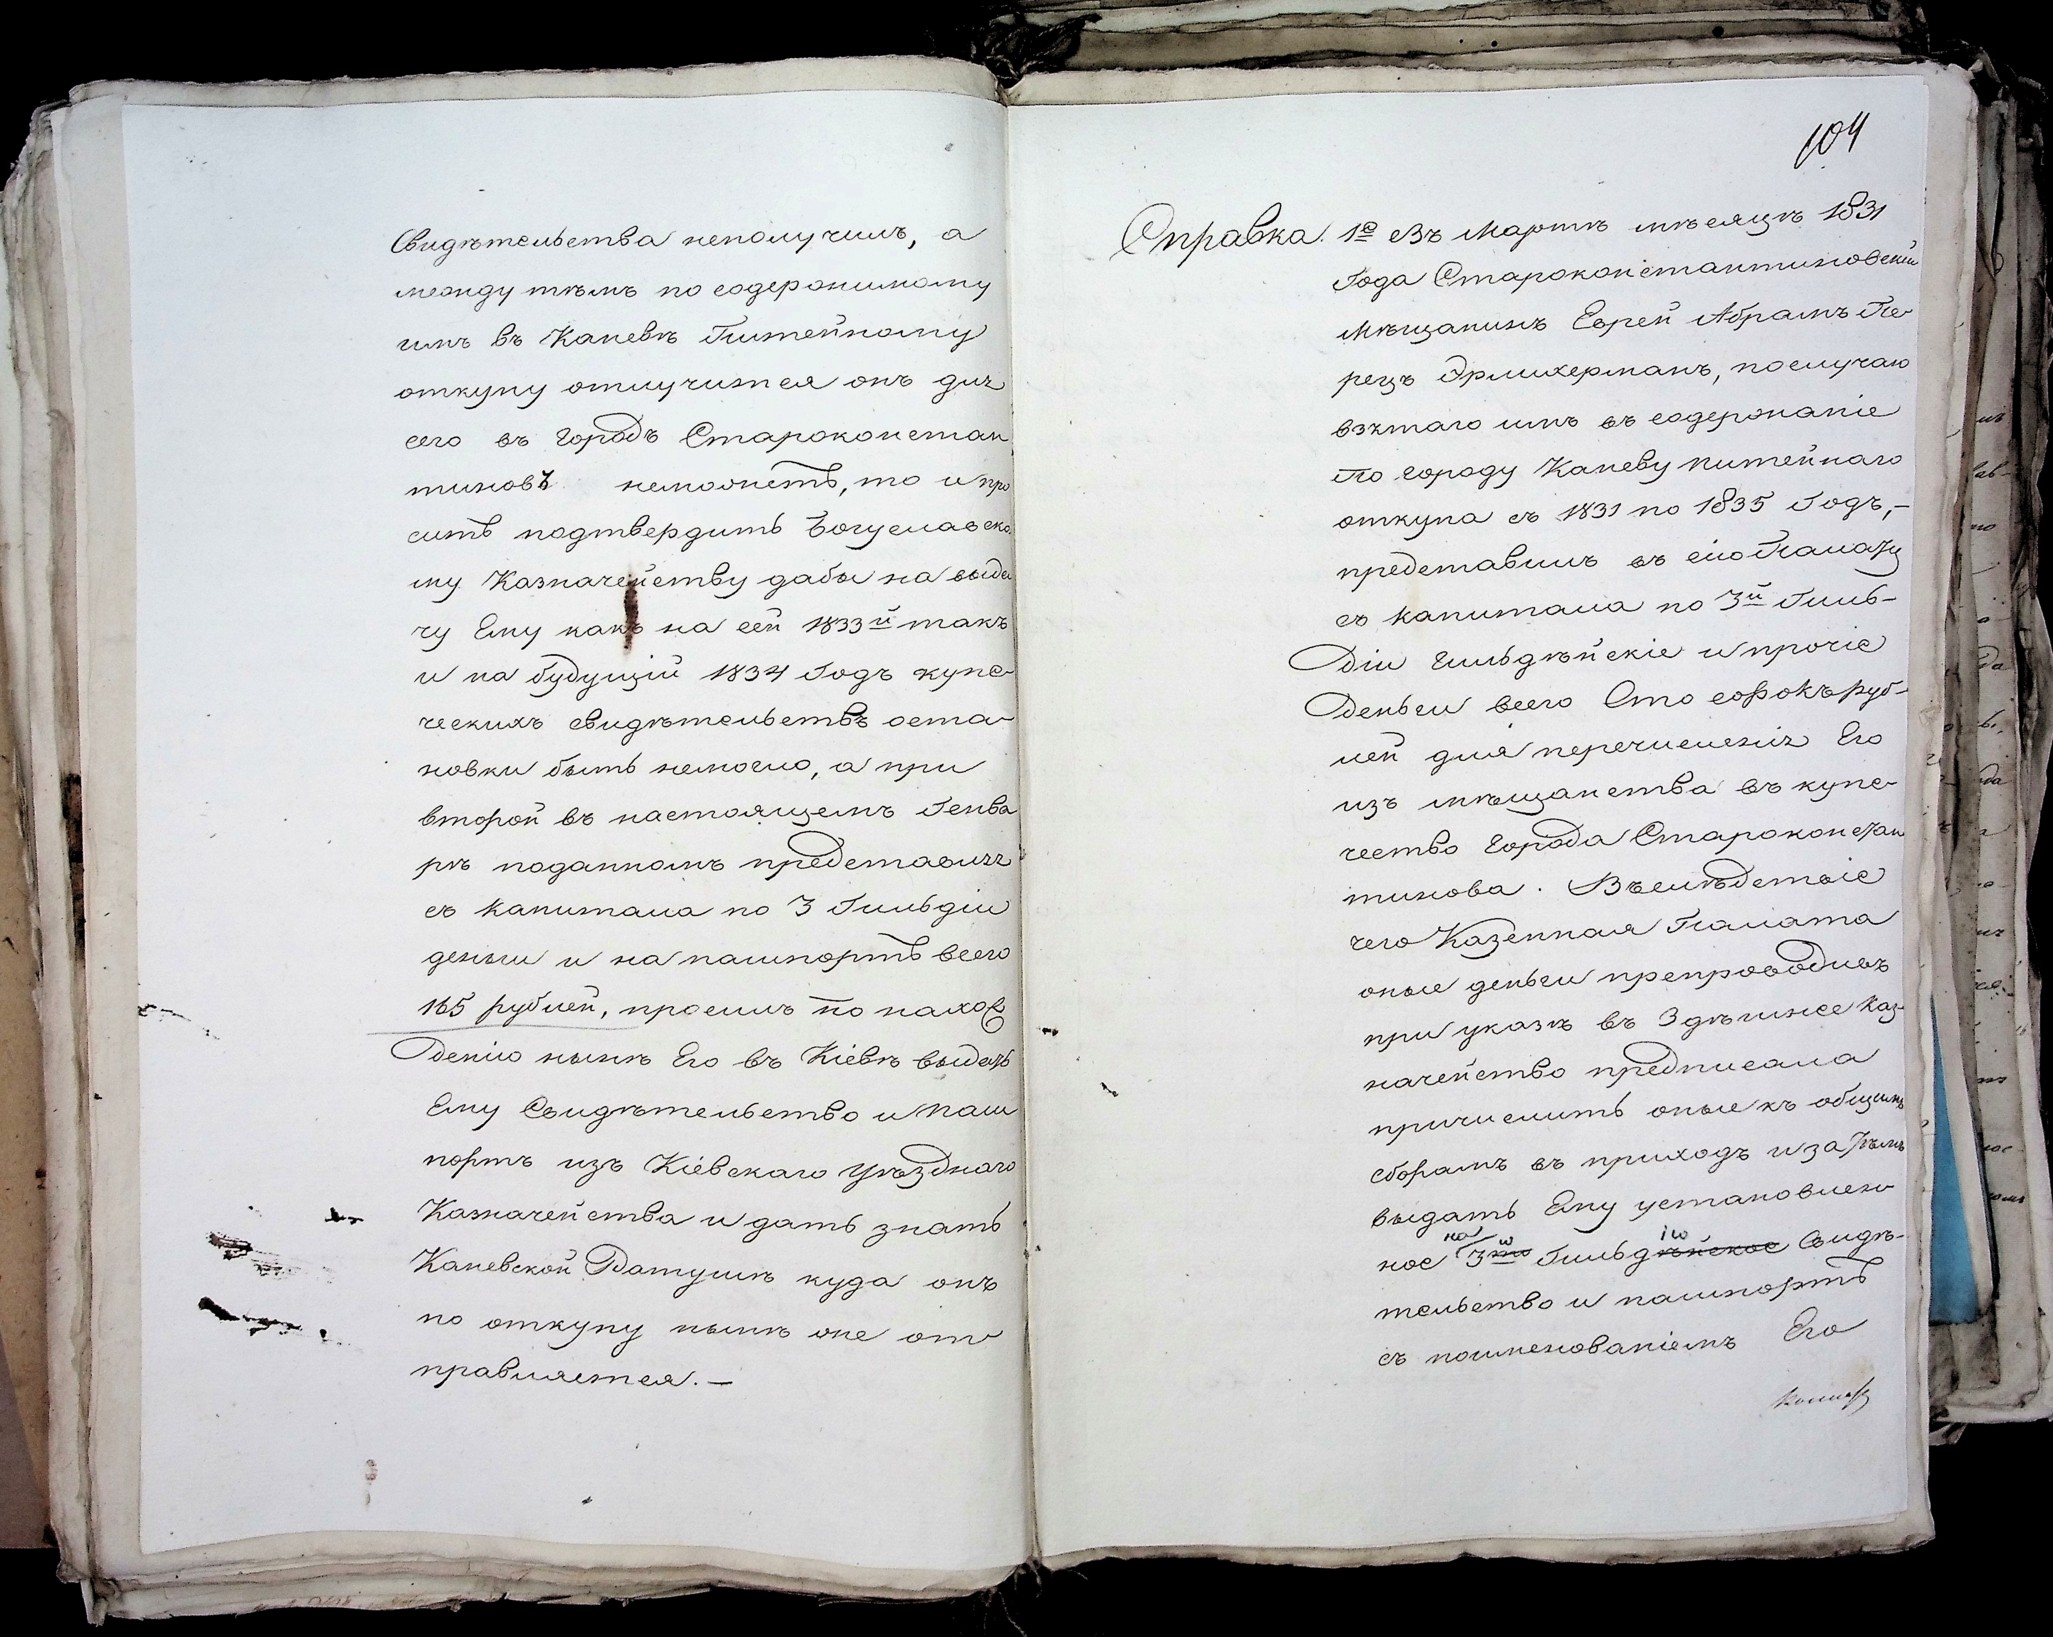 Свидѣтельства неполучилъ, а
между тѣмъ по содержимому
имъ въ Каневѣ Питейному
откупу отлучится онъ для
сего въ городъ Староконстан
тиновъ неможетъ, то и про
ситъ подтвердить Богуславско
му Казначейству дабы на выда
чу Ему какъ на сей 1833й такъ
и на будущій 1834 Годъ купе-
ческихъ свидѣтельствъ оста-
новки быть немогло, а при
второй въ настоящемъ Генва
рѣ поданномъ представляя
съ капитала по 3 Гильдіи
деньги и на пашпортъ всего
165 рублей, просилъ по нахож
денію нынѣ Его въ Кіевѣ выдать
Ему Свидѣтельство и паш
портъ изъ Кіевскаго уѣзднаго
Казначейства и дать знать
Каневской Ратушѣ куда онъ
по откупу нынѣ же от-
правляется. —
104
Справка. 1е въ Мартѣ мѣсяцѣ 1831
Года Староконстантиновскій
мѣщанинъ Еврей Абрамъ Пе-
рецъ Эрлихерманъ, послучаю
взятаго имъ въ содержаніе
по городу Каневу питейнаго
откупа съ 1831 по 1835 Годъ, —
представилъ въ сію Палату
съ капитала по 3й Гиль-
діи гильдѣйскіе и прочіе
деньги всего Сто сорокъ руб-
лей для перечисленія Его
изъ мѣщанства въ купе-
чество города Староконстан
тинова. Вслѣдствіе
чего Казенная Палата
оные деньги препроводивъ
при указѣ въ Здѣшнее Каз-
начейство предписала
причислить оные къ общимъ
сборамъ въ приходъ и затѣмъ
выдать Ему установлен-
ное по 3й Гильдію Свидѣ-
тельство и пашпортъ
съ поименованіемъ Его